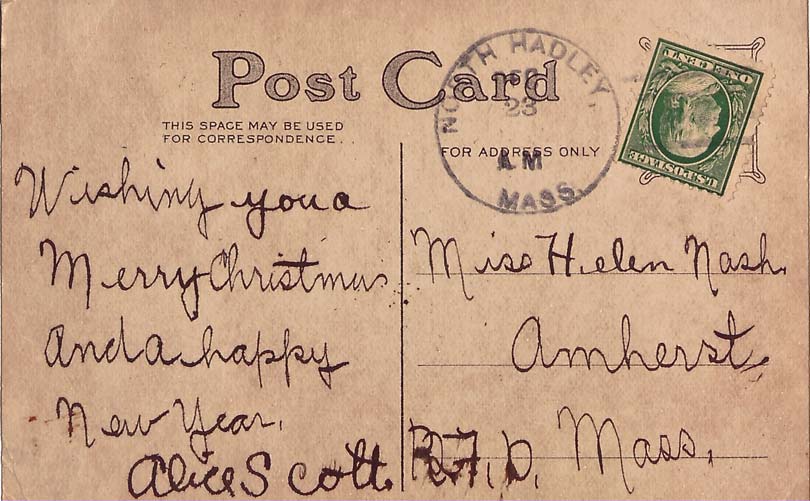 Post Card
THIS SPACE MAY BE USED
FOR CORRESPONDENCE..
FOR ADDRESS ONLY
NORTH HADLEY,
23
AM
MASS.
U.S. POSTAGE
ONE CENT
Wishing you a
Merry Christmas
And a happy
New Year.
Alice Scott.
Miss Helen Nash.
Amherst,
R.F.D. Mass,